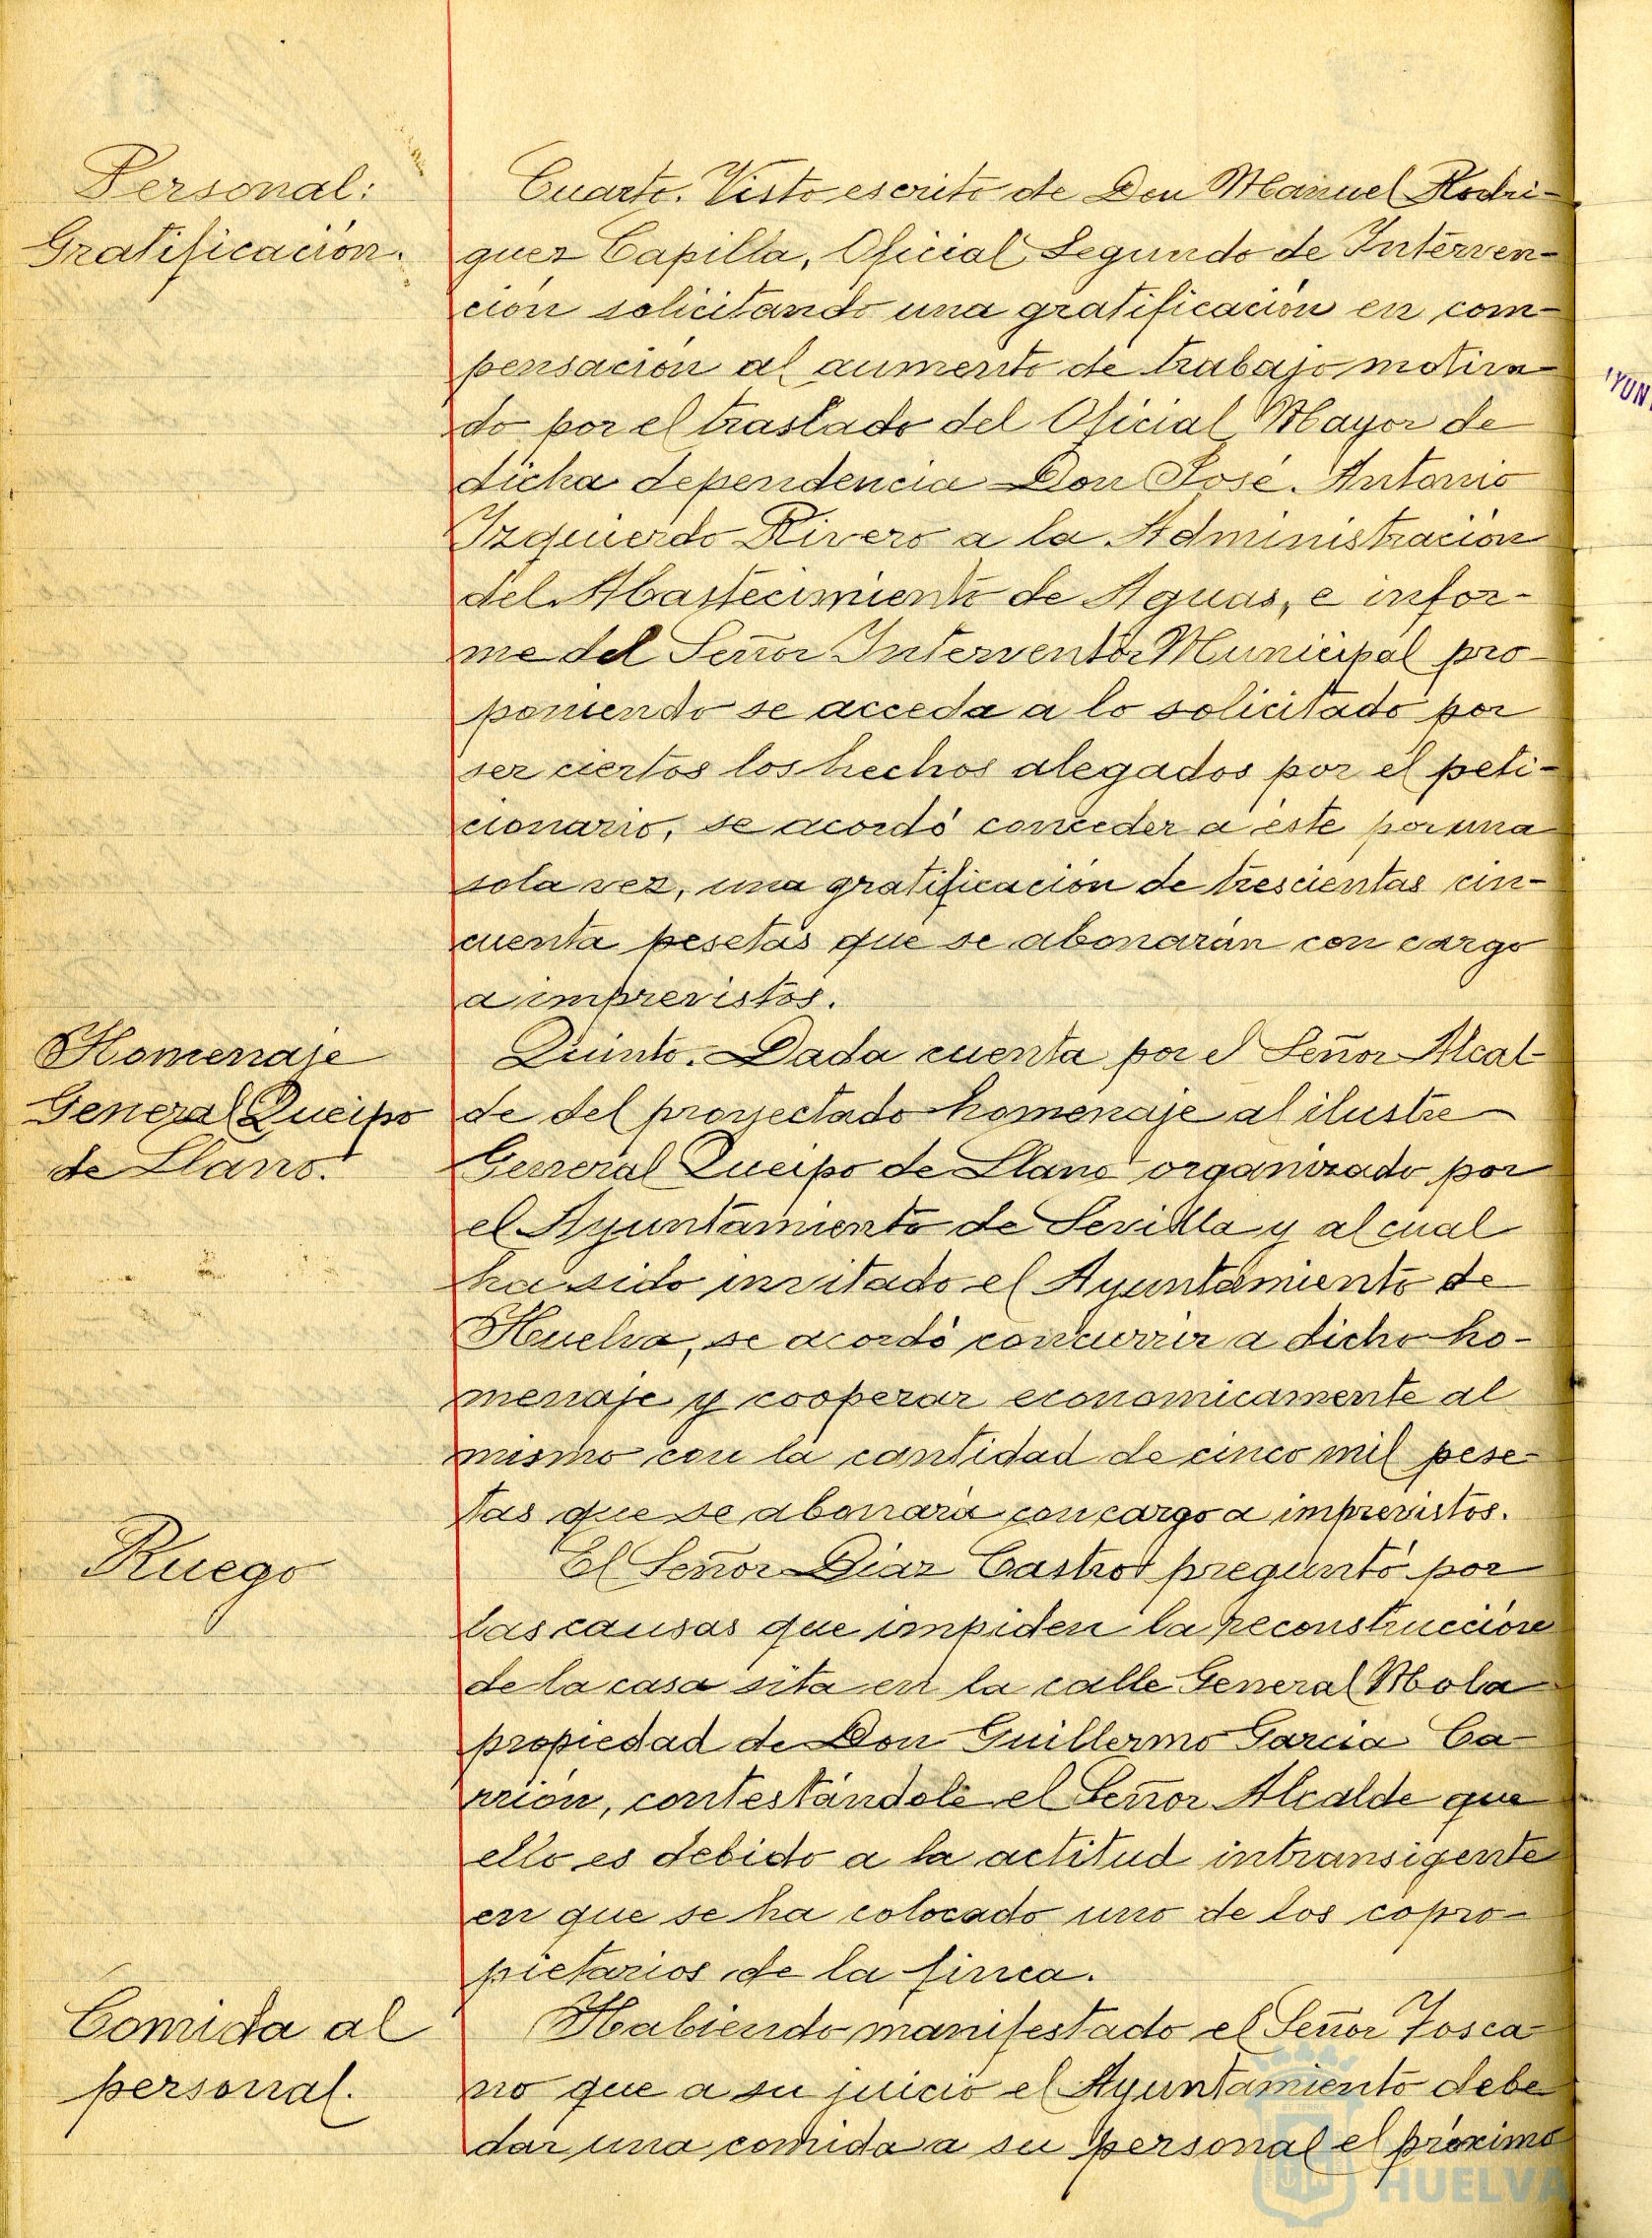 Personal:
Gratificación.
Cuarto. Visto escrito de Don Manuel Rodri-
guez Capilla, Oficial Segundo de Interven-
ción solicitando una gratificación en com-
pensación al aumento de trabajo motiva
do por el traslado del Oficial Mayor de
dicha dependencia Don José Antonio
Izquierdo Rivero a la Administración
del Abastecimiento de Aguas, e infor-
me del Señor Interventor Municipal pro-
poniendo se acceda a lo solicitado por
ser ciertos los hechos alegados por el peti-
cionario, se acordó conceder a éste por una
sola vez, una gratificación de trescientas cin-
cuenta pesetas que se abonarán con cargo
a imprevistos.
Homenaje
General Queipo
de Llano.
Quinto. Dada cuenta por el Señor Alcal-
de del proyectado homenaje al ilustre
General Queipo de Llano organizado por
el Ayuntamiento de Sevilla y al cual
ha sido invitado el Ayuntamiento de
Huelva, se acordó concurrir a dicho ho-
menaje y cooperar economicamente al
mismo con la cantidad de cinco mil pese-
tas que se abonará con cargo a imprevistos.
Ruego
El Señor Díaz Castro preguntó por
las causas que impiden la reconstrucción
de la casa sita en la calle General Mola
propiedad de Don Guillermo García Ca-
rrión, contestándole el Señor Alcalde que
ello es debido a la actitud intransigente
en que se ha colocado uno de los copro-
pietarios de la finca.
Comida al
personal.
Habiendo manifestado el Señor Tosca-
no que a su juicio el Ayuntamiento debe
dar una comida a su personal el próximo
HUELVA